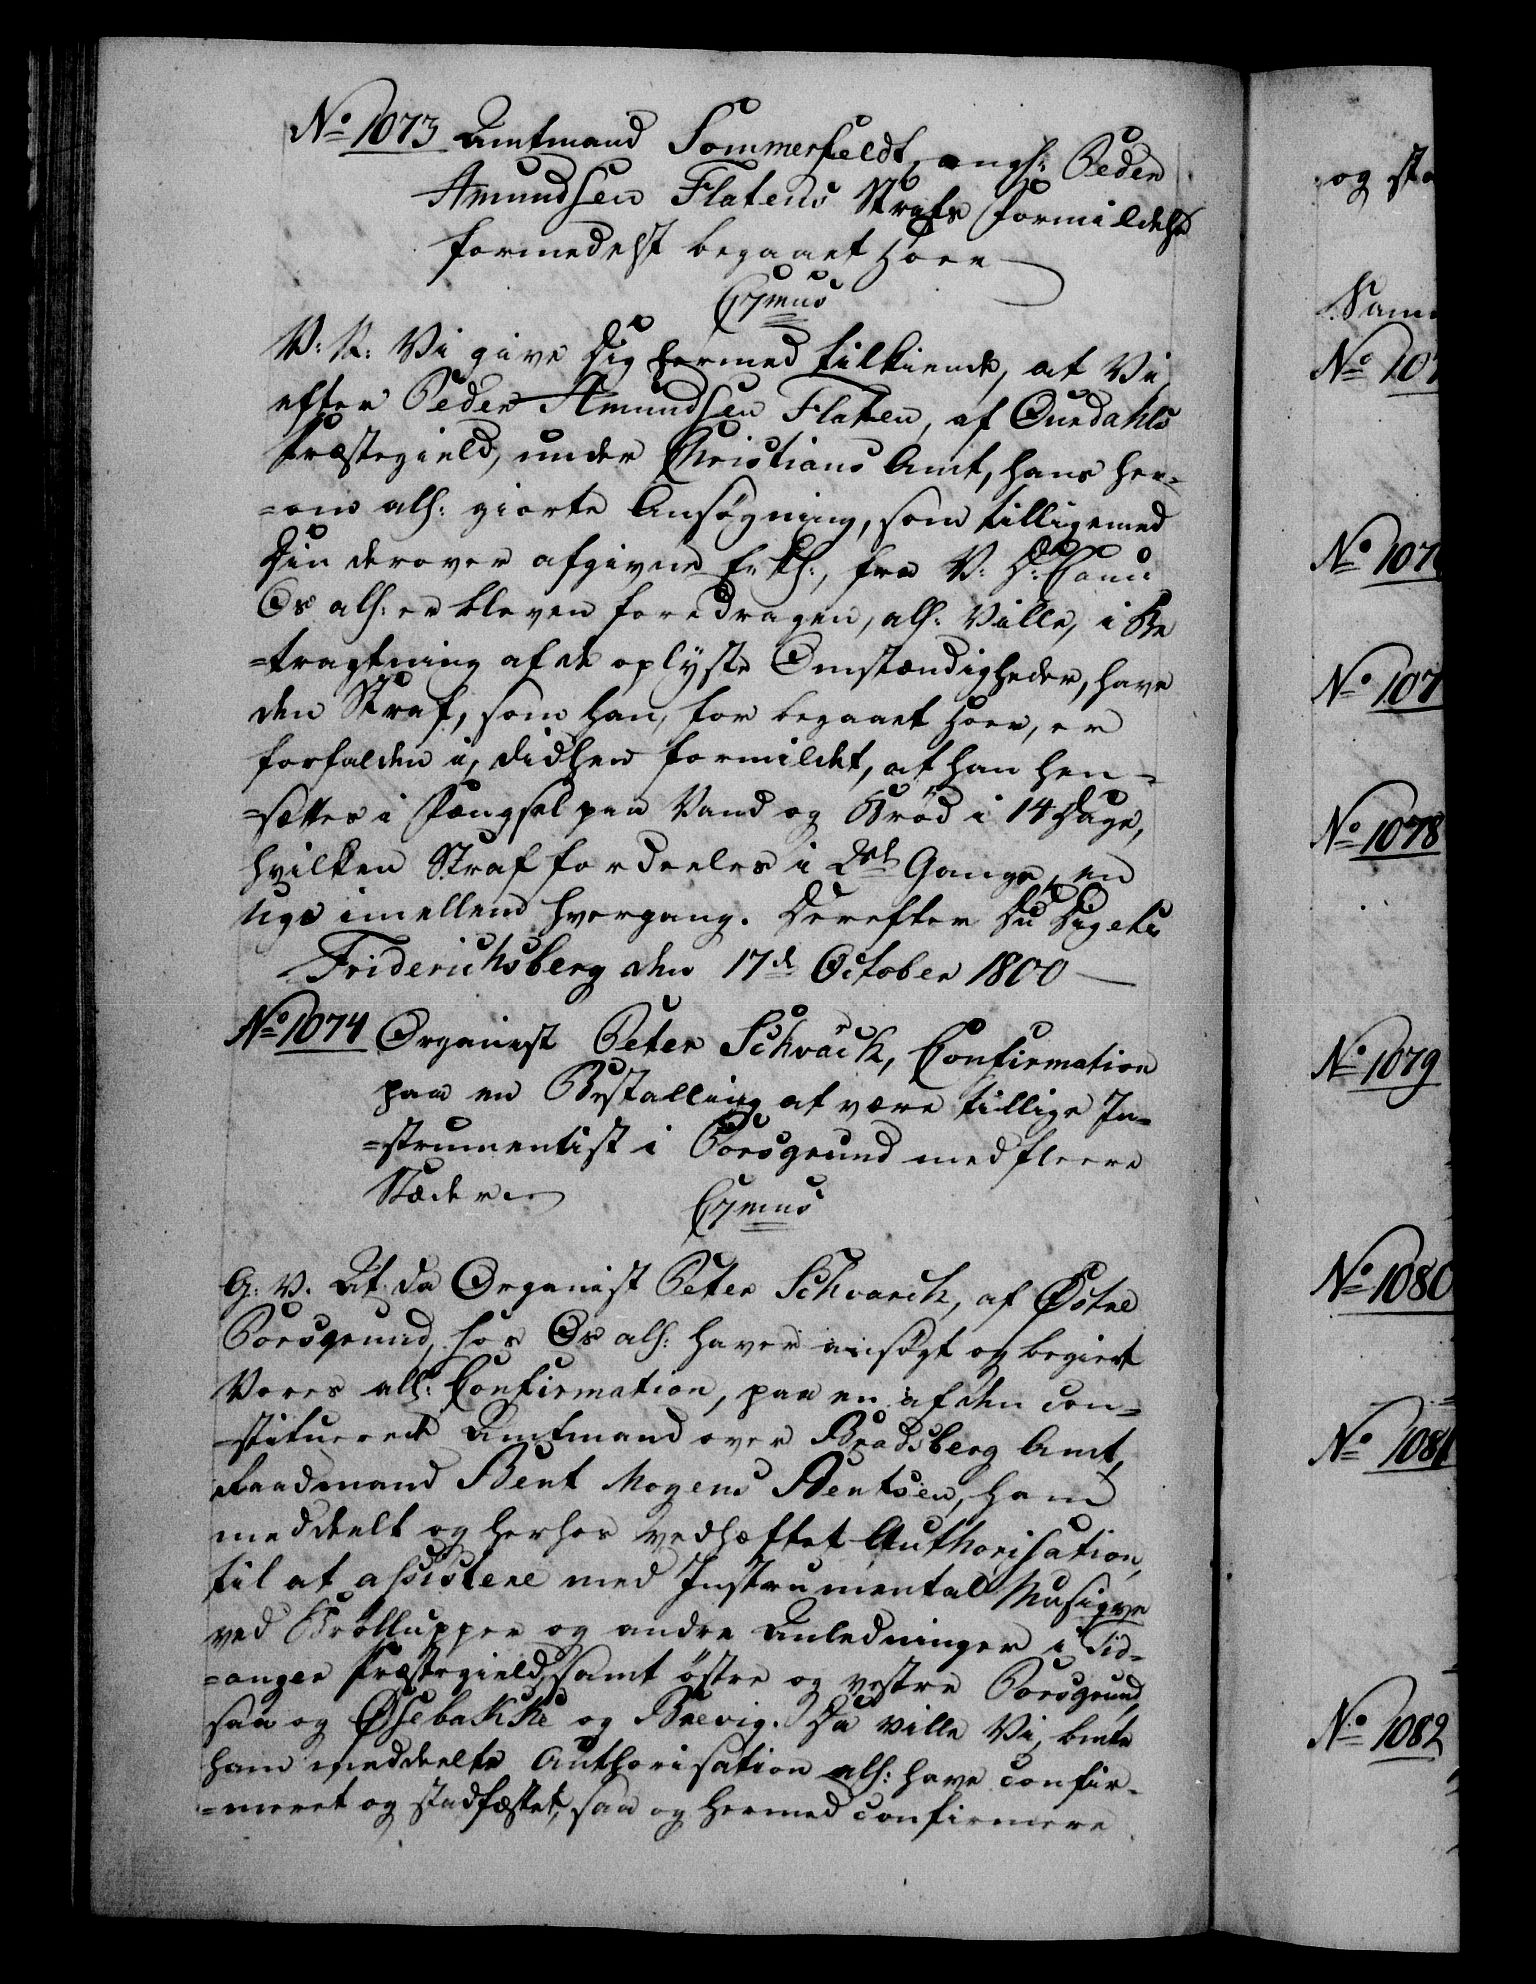 No 1073 Amtmand Sommerfeldt, angl: Peder
Amundsen Flatens Straffs formildelse
formedelst begaaet Hoer
C7mus
V: K: Vi give Dig hermed tilkiende, at Vi,
efter Peder Amundsen Flaten, af Ourdahls
Præstegield, under Christians Amt, hans her-
=om alh: giorte Ansøgning, som tilligemed
Din derover afgivne Erkl:, fra V: D: Canc:
Os alh: er bleven foredragen, alh: Ville, i Be
=tragtning af de oplyste Omstændigheder, have
den Straf, som han, for begaaet Hoer, er
forfalden i, didhen formildet, at han hen-
=sættes i Fængsel paa Vand og Brød i 14 Dage,
hvilken Straf fordeeles i 2de Gange, en
Uge imellem hvergang. Derefter Du Dig etc
Friderichsberg den 17de October 1800
No 1074 Organist Peter Schvärck, Confirmation
paa en Bestalling at være tillige In-
=strumentist i Porsgrund med fleere
Stæder
C7mus
G: V. At da Organist Peter Schvarck, af Østre
Porsgrund, hos Os alh: haver ansøgt og begiert
Vores alh: Confirmation, paa en af den con-
=stituerede Amtmand over Bradsberg Amt,
Raadmand Bent Mogens Aentsen, ham
meddeelt og herhos vedhæftet Authorisation,
til at assistere med Instrumental Musiqve
ved Brøllupper og andre Anledninger i Eid-
=anger Præstegield, samt østre og vestre Porsgrund,
saa og Øsebakke og Brevig. Da ville Vi, bmte
ham meddeelte Authorisation alh: have confir-
=meret og stadfæstet, saa og hermed confirmere
og sta
Sam
No 107
No 107
No 107
No 1078
No 1079
No 1080
No 1081
No 1082